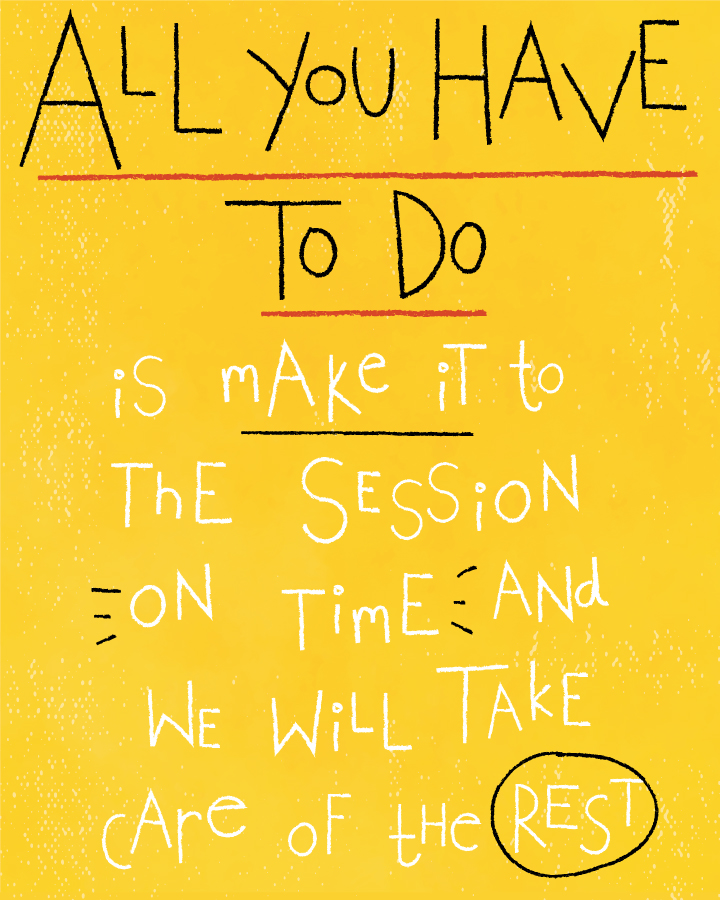 ALL YOU HAVE
TO DO
iS mAKe iT to
ThE SESSiON
ON TimE ANd
WE WiLL TAKE
cAre oF tHe REST